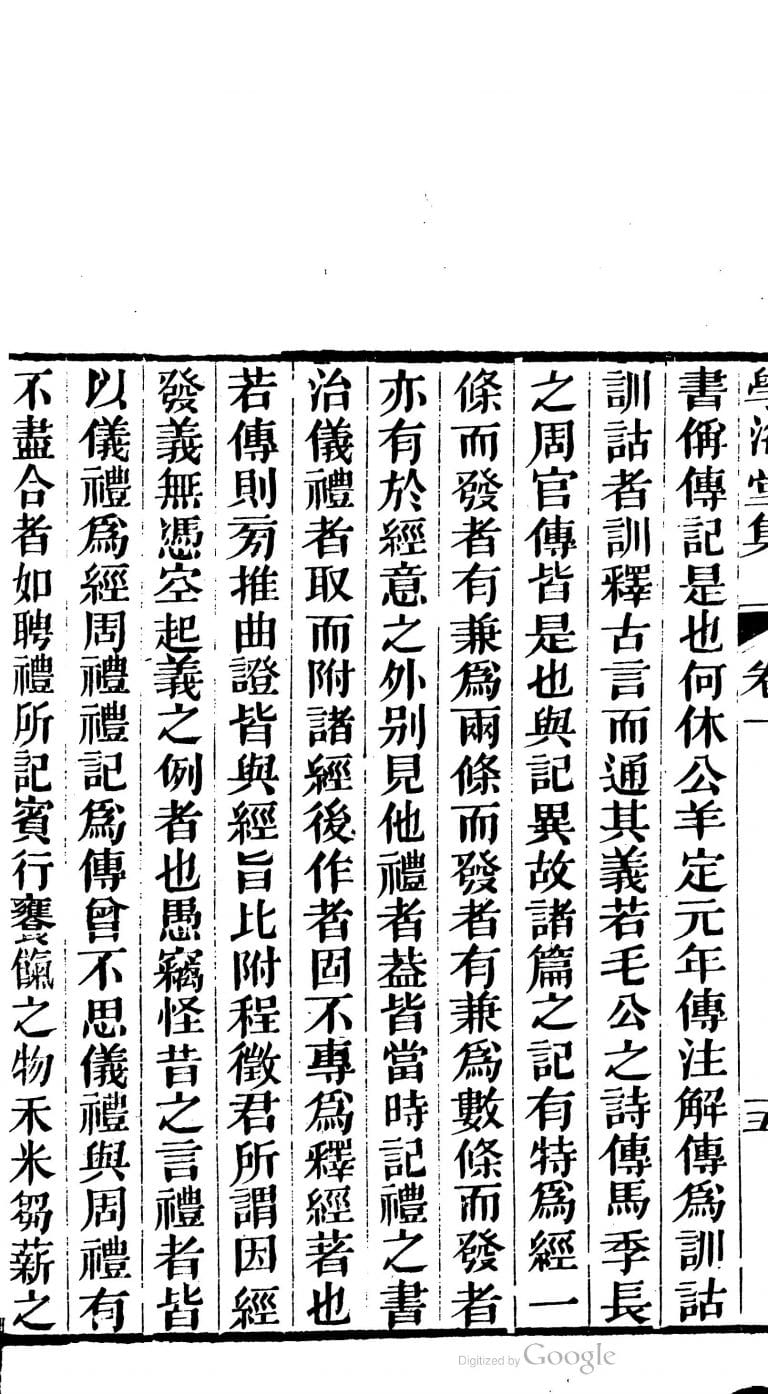 學海堂集 卷一 五
書偁傳記是也何休公羊定元年傳注解傳爲訓詁
訓詁者訓釋古言而通其義若毛公之詩傳馬季長
之周官傳皆是也與記異故諸篇之記有特爲經一
條而發者有兼爲兩條而發者有兼爲數條而發者
亦有於經意之外别見他禮者葢皆當時記禮之書
治儀禮者取而附諸經後作者固不專爲釋經著也
若傳則㫄推曲證皆與經旨比附程徵君所謂因經
發義無憑空起義之例者也愚竊怪昔之言禮者皆
以儀禮爲經周禮禮記爲傳曾不思儀禮與周禮有
不盡合者如聘禮所記賓行饔餼之物禾米芻薪之
Digitized by Google